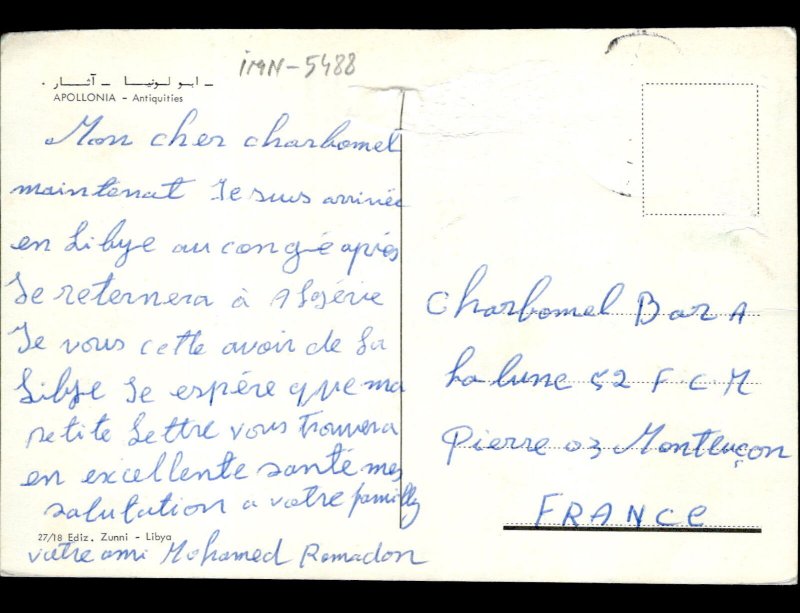 iMN-5488
ـ ابو لونيا ـ آثـار .
APOLLONIA - Antiquities
Mon cher charbomel
maintenat Je suis arrivée
en Libye au congié après
Je reternera à Algérie
Je vous cette avoir de La
Libye Je espére que ma
petite Lettre vous trouvera
en excellente santé mes
salutation a votre familly
votre ami Mohamed Ramadon
27/18 Ediz. Zunni - Libya
Charbomel Bar A
La lune 52 F C M
Pierre 03 Montluçon
FRANCE